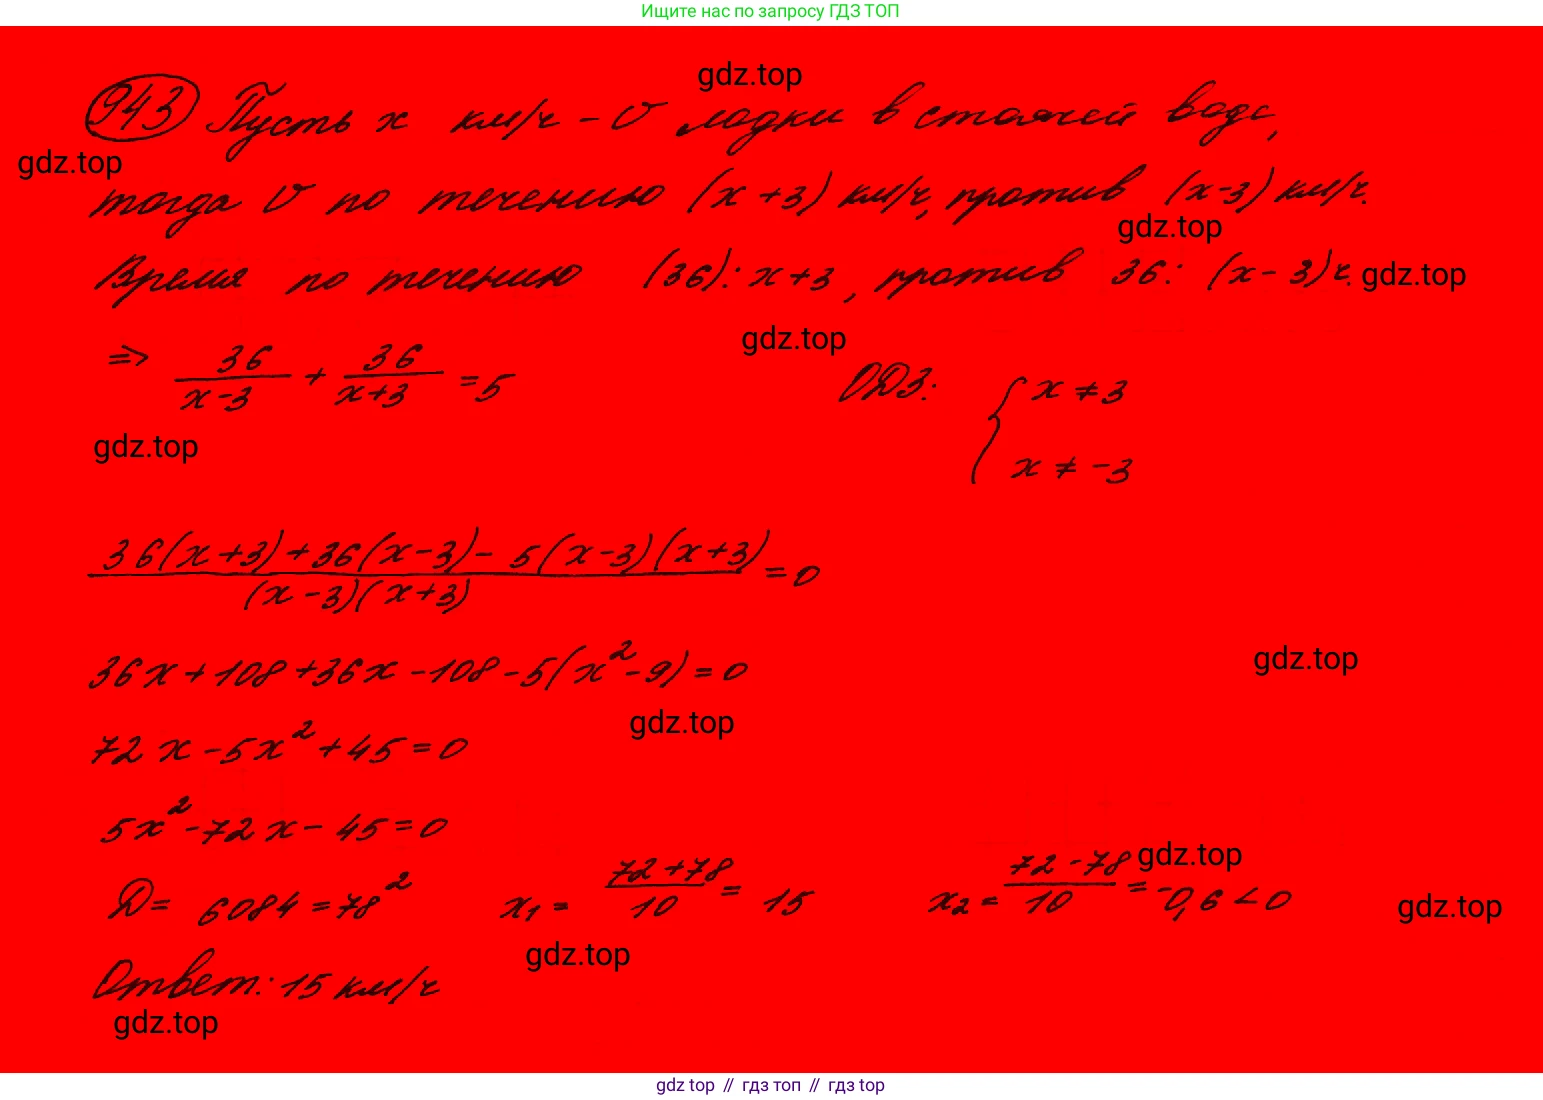 Ищите нас по запросу ГДЗ ТОП
gdz.top
943 Пусть x км/ч - v лодки в стоячей воде,
gdz.top
тогда v по течению (x+3) км/ч, против (x-3) км/ч.
gdz.top
Время по течению (36): x+3, против 36: (x-3) ч. gdz.top
gdz.top
=> 36/(x-3) + 36/(x+3) = 5 ОДЗ: { x ≠ 3
x ≠ -3
gdz.top
(36(x+3)+36(x-3)-5(x-3)(x+3))/((x-3)(x+3)) = 0
36x+108+36x-108-5(x²-9)=0
gdz.top
gdz.top
72x-5x²+45=0
5x²-72x-45=0
gdz.top
D= 6084=78² x₁ = (72+78)/10 = 15 x₂ = (72-78)/10 = -0,6<0
gdz.top
gdz.top
Ответ: 15 км/ч
gdz.top
gdz top // гдз топ // gdz top